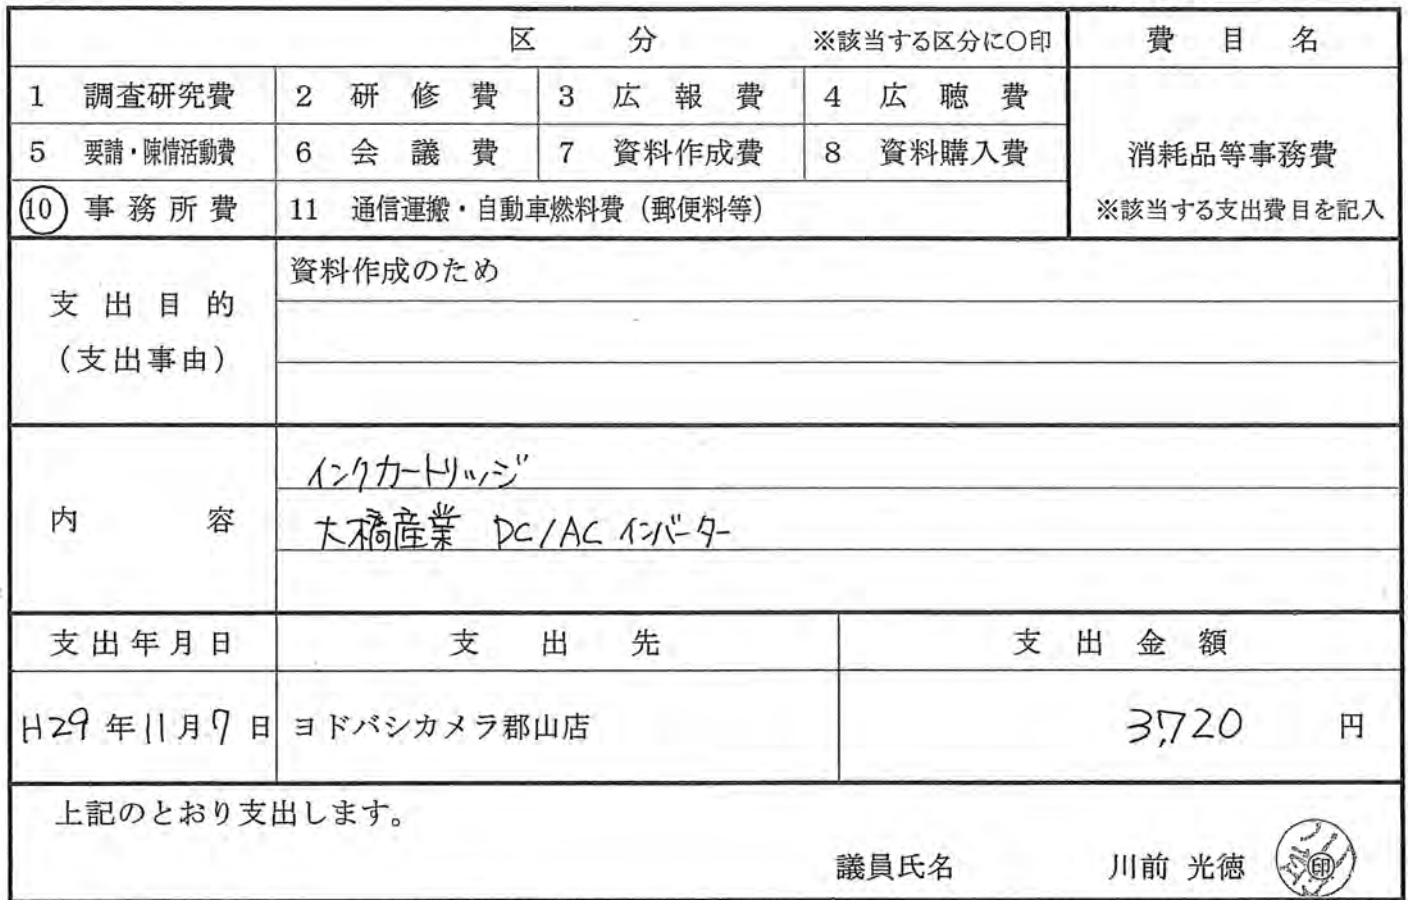 区 分 ※該当する区分に〇印 費目名
1 調査研究費 2 研修費 3 広報費 4 広聴費
5 要請・陳情活動費 6 会議費 7 資料作成費 8 資料購入費 消耗品等事務費
10 事務所費 11 通信運搬・自動車燃料費（郵便料等） ※該当する支出費目を記入
支出目的 資料作成のため
（支出事由）
インクカートリッジ
内容 大橋産業 DC/AC インバーター
支出年月日 支出先 支出金額
H29年11月7日 ヨドバシカメラ郡山店 3,720 円
上記のとおり支出します。
議員氏名 川前 光徳 印